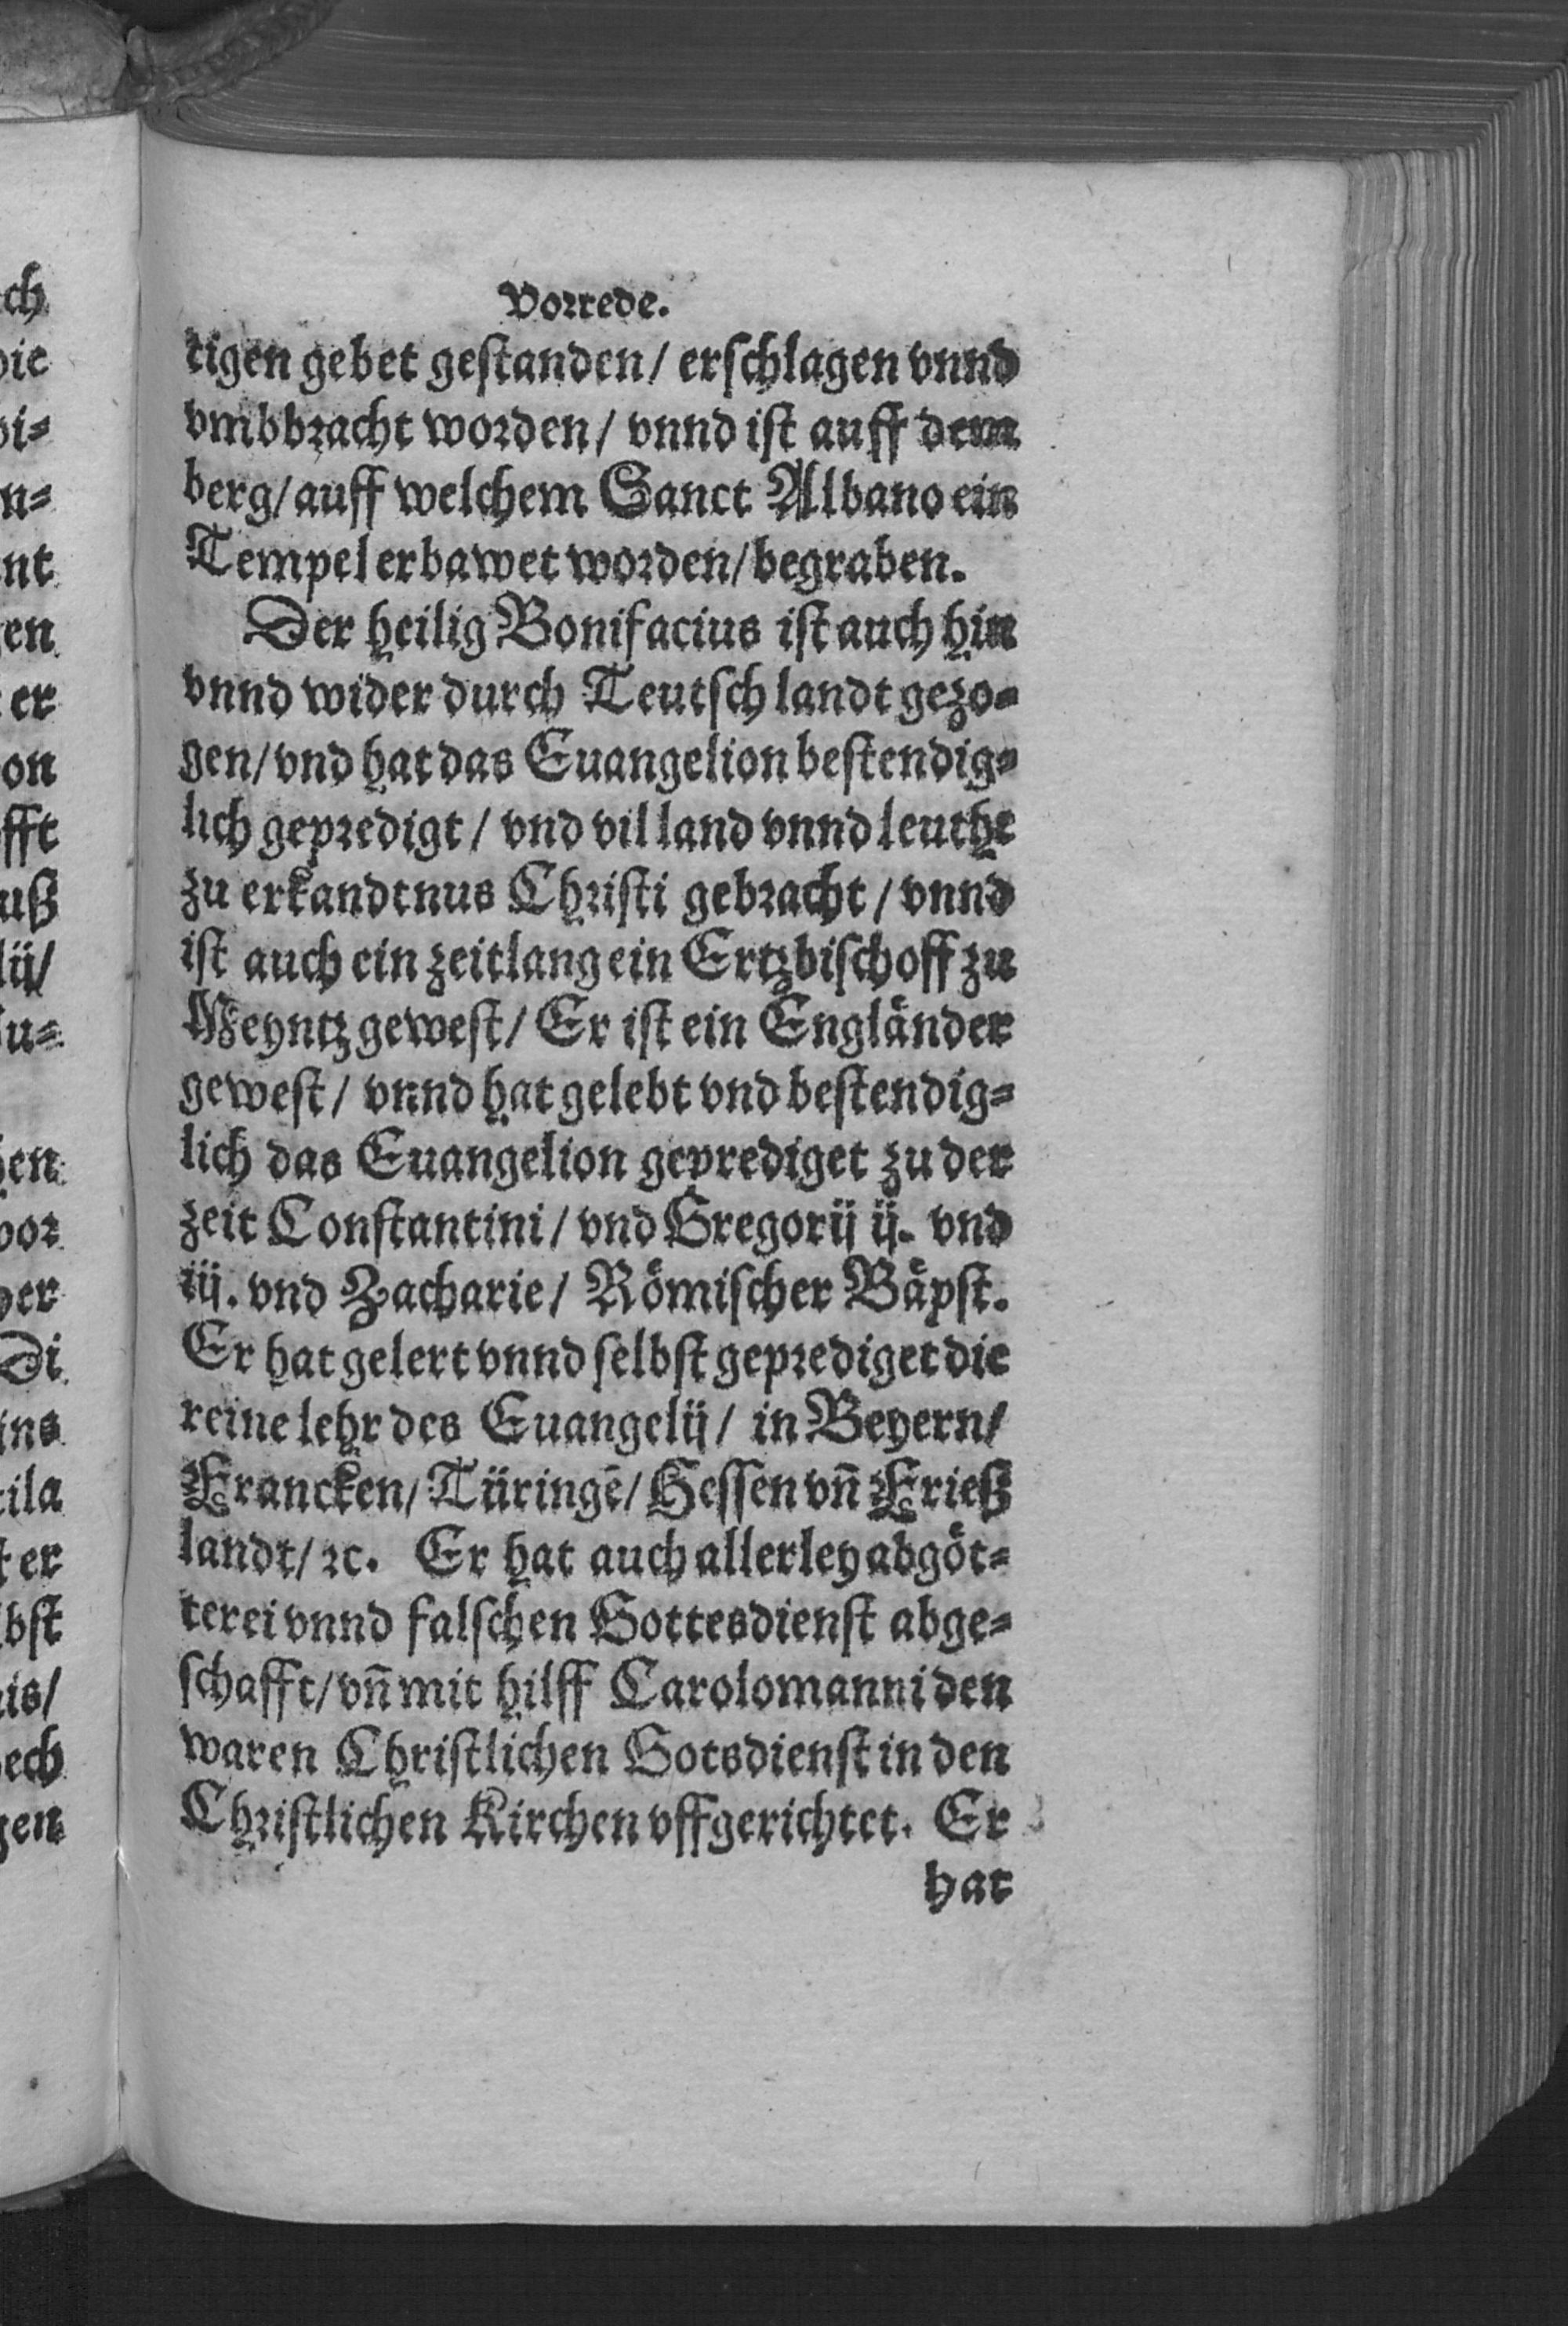 Vorrede.
tigen gebet gestanden/ erschlagen vnnd
vmbbracht worden/ vnnd ist auff dem
berg/ auff welchem Sanct Albano ein
Tempel erbawet worden/ begraben.
Der heilig Bonifacius ist auch hin
vnnd wider durch Teutschlandt gezo=
gen/ vnd hat das Euangelion bestendig=
lich gepredigt/ vnd vil land vnnd leuthe
zu erkandtnus Christi gebracht/ vnnd
ist auch ein zeitlang ein Ertzbischoff zu
Meyntz gewest/ Er ist ein Engla̋nder
gewest/ vnnd hat gelebt vnd bestendig=
lich das Euangelion geprediget zu der
zeit Constantini/ vnd Gregorij ij. vnd
iij. vnd Zacharie/ Ro̊mischer Båpst.
Er hat gelert vnnd selbst geprediget die
reine lehr des Euangelij/ in Beyern/
Francken/ Türingē/ Hessen vn̄ Frieß
landt/ ꝛc. Er hat auch allerley abgöt=
terei vnnd falschen Gottesdienst abge=
schafft/ vn̄ mit hilff Carolomanni den
waren Christlichen Gotsdienst in den
Christlichen Kirchen vffgerichtet. Er
hat